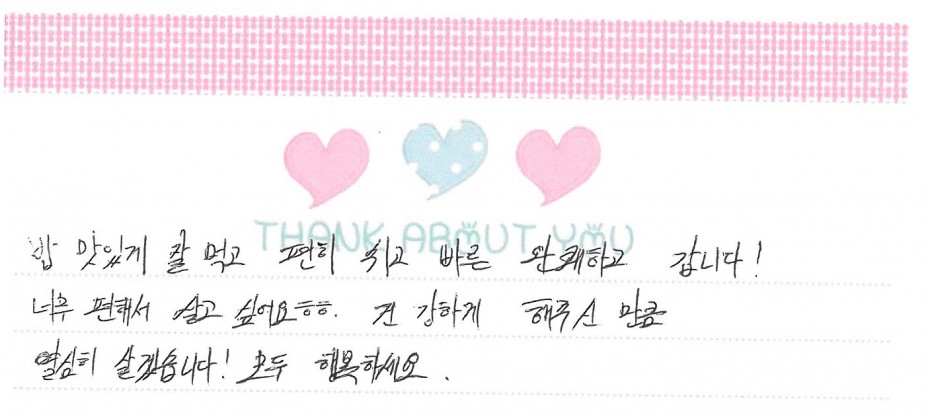 THANK ABOUT YOU
밥 맛있게 잘 먹고 편히 쉬고 바른 완쾌하고 갑니다!
너무 편해서 살고 싶어요ㅎㅎ. 건강하게 해주신 만큼
열심히 살겠습니다! 모두 행복하세요.